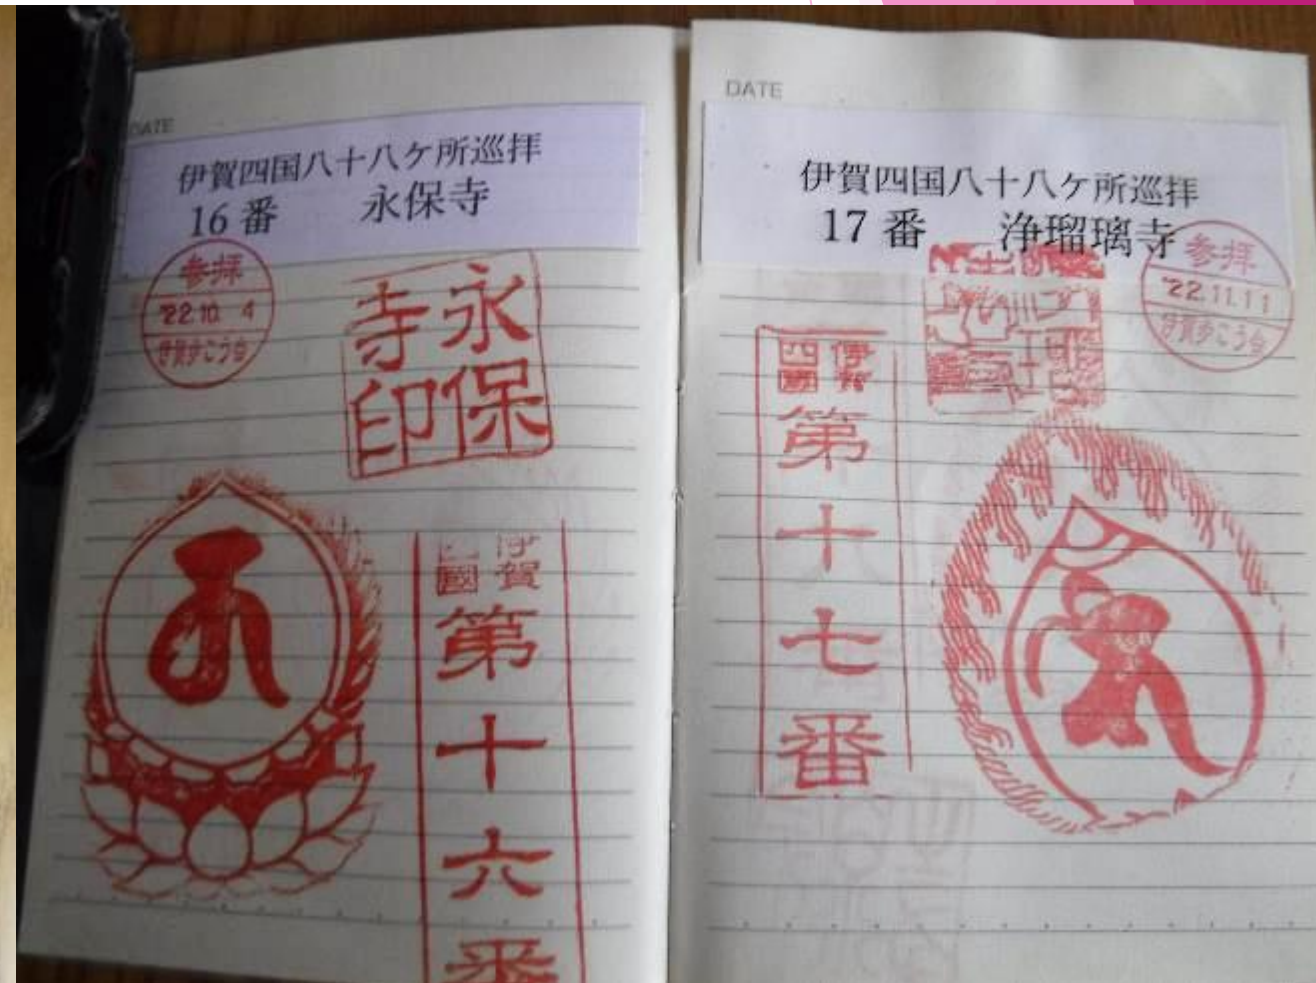 DATE
伊賀四国八十八ケ所巡拝
16 番 永保寺
参拝
'22.10. 4
伊賀歩こう会
永保
寺印
伊賀
國
第十六番
DATE
伊賀四国八十八ケ所巡拝
17 番 浄瑠璃寺
参拝
'22.11.11
伊賀歩こう会
伊賀
四國
第十七番